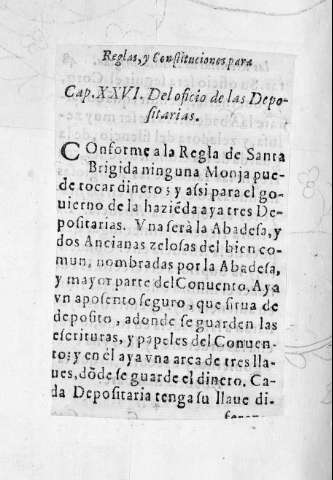 Reglas, y Constituciones para
Cap. XXVI. Del oficio de las Depo-
sitarias.
COnforme a la Regla de Santa
Brigida ninguna Monja pue-
de tocar dinero; y assi para el go-
uierno de la haziẽda aya tres De-
positarias. Vna serà la Abadesa, y
dos Ancianas zelosas del bien co-
mun, nombradas por la Abadesa,
y mayor parte del Conuento. Aya
vn aposento seguro, que sirua de
deposito, adonde se guarden las
escrituras, y papeles del Conuen-
to; y en èl aya vna arca de tres lla-
ues, dõde se guarde el dinero. Ca-
da Depositaria tenga su llaue di-